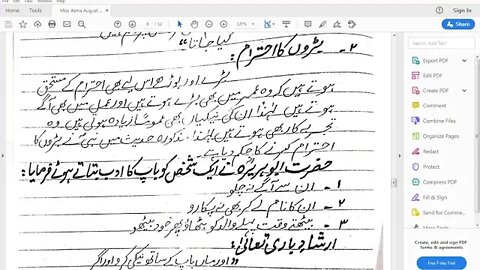 Home
Tools
Miss Asma August...
123%
کیا جاتا"
۲- بڑوں کا احترام:
بڑے اور بوڑھے اس لیے بھی احترام کے مستحق
ہوتے ہیں کہ وہ عمر میں بھی بڑے ہوتے ہیں اور عمل میں بھی آگے
ہوتے ہیں لہٰذا ان کی نیکیاں بھی عموماً زیادہ ہوتی ہیں وہ
تجربے کار بھی ہوتے ہیں لہٰذا مذکورہ حدیث میں بھی بڑوں کا
احترام کرنے کا حکم دیا ہے۔
حضرت ابو ہریرہؓ نے ایک شخص کو باپ کا ادب بتاتے ہوئے فرمایا:
۱- ان سے آگے نہ چلو
۲- ان کا نام لے کر بھی نہ پکارو
۳- بیٹھتے وقت پہلے والد کو بٹھاؤ پھر خود بیٹھو
ارشادِ باری تعالیٰ:
"اور ماں باپ کے ساتھ نیکی کرو اور اگر
Export PDF
Edit PDF
Create PDF
Comment
Combine Files
Organize Pages
Redact
Protect
Compress PDF
Fill & Sign
Send for Comme...
Create, edit and sign PDF
forms & agreements
Free 7-day Trial